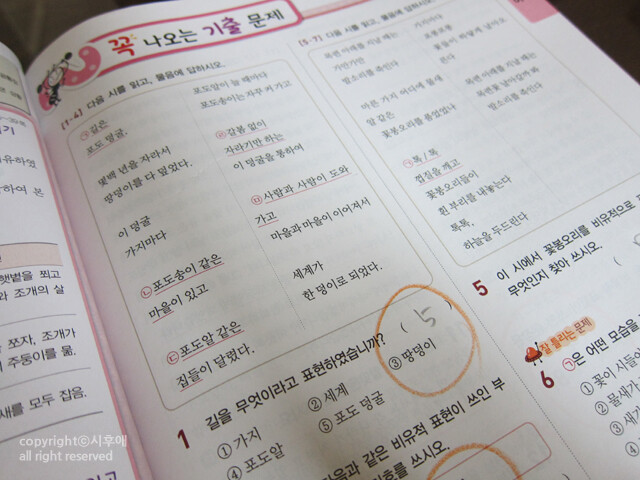 꼭 나오는 기출 문제
[1-4] 다음 시를 읽고, 물음에 답하시오.
㉠길은
포도 덩굴.
몇백 년을 자라서
땅덩이를 다 덮었다.
이 덩굴
가지마다
㉡포도송이 같은
마을이 있고
㉢포도알 같은
집들이 달렸다.
포도알이 늘 때마다
포도송이는 자꾸 커 가고
㉣갈봄 없이
자라기만 하는
이 덩굴을 통하여
㉤사람과 사람이 도와
가고
마을과 마을이 이어져서
세계가
한 덩이로 되었다.
1 길을 무엇이라고 표현하였습니까? ( 5 )
① 가지 ② 세계 ③ 땅덩이
④ 포도알 ⑤ 포도 덩굴
같은 비유적 표현이 쓰인 부
호를 쓰시오.
[5-7] 다음 시를 읽고, 물음에 답하시오.
가만가만
발소리를 죽인다
마른 가지 마디에 물새
알 같은
꽃봉오리를 품었었나
㉠톡 / 톡
껍질을 깨고
꽃봉오리들이
흰 부리를 내놓는다
톡톡,
하늘을 두드린다
가지마다
포롱포롱
꽃들이
발소리를 죽인다
5 이 시에서 꽃봉오리를 비유적으로
무엇인지 찾아 쓰시오.
잘 틀리는 문제
6 ㉠은 어떤 모습을
① 꽃이 시들
② 물새가
③ 새가
④
하여 본
햇볕을 쬐고
와 조개의 살
쪼자, 조개가
주둥이를 묾.
새를 모두 잡음.
copyrightⓒ시후에
all right reserved